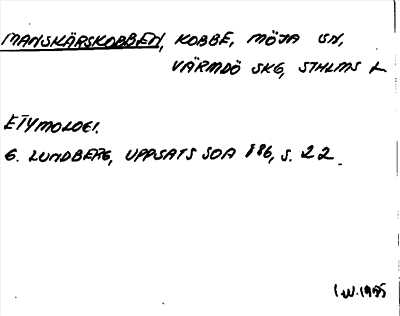 MANSKÄRSKOBBEN, KOBBE, MÖJA SN,
VÄRMDÖ SKG, STHLMS L
ETYMOLOGI.
G. LUNDBERG, UPPSATS SOA 886, S. 22.
I.W. 1985